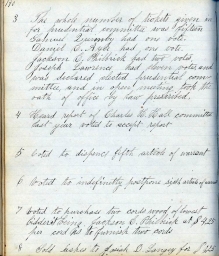 190
3 The whole number of tickets given in
for prudential committee was fifteen
Samuel Quimby had one vote.
Daniel E. Ayer had one vote.
Jackson C. Philbrick had two votes
Joseph Lawrence had eleven votes and
was declared elected prudential com-
mittee, and in open meeting took the
oath of office by law prescribed.
4 Heard report of Charles W. committee
last year voted to accept report
5 Voted to dispense fifth article of warrant
6 Voted to indefinitely postpone sixth article of warrant
7 Voted to purchase two cords wood of lowest
bidder being Jackson C. Philbrick at $4.23
per cord as to furnish two cords
8 Sold ashes to for $